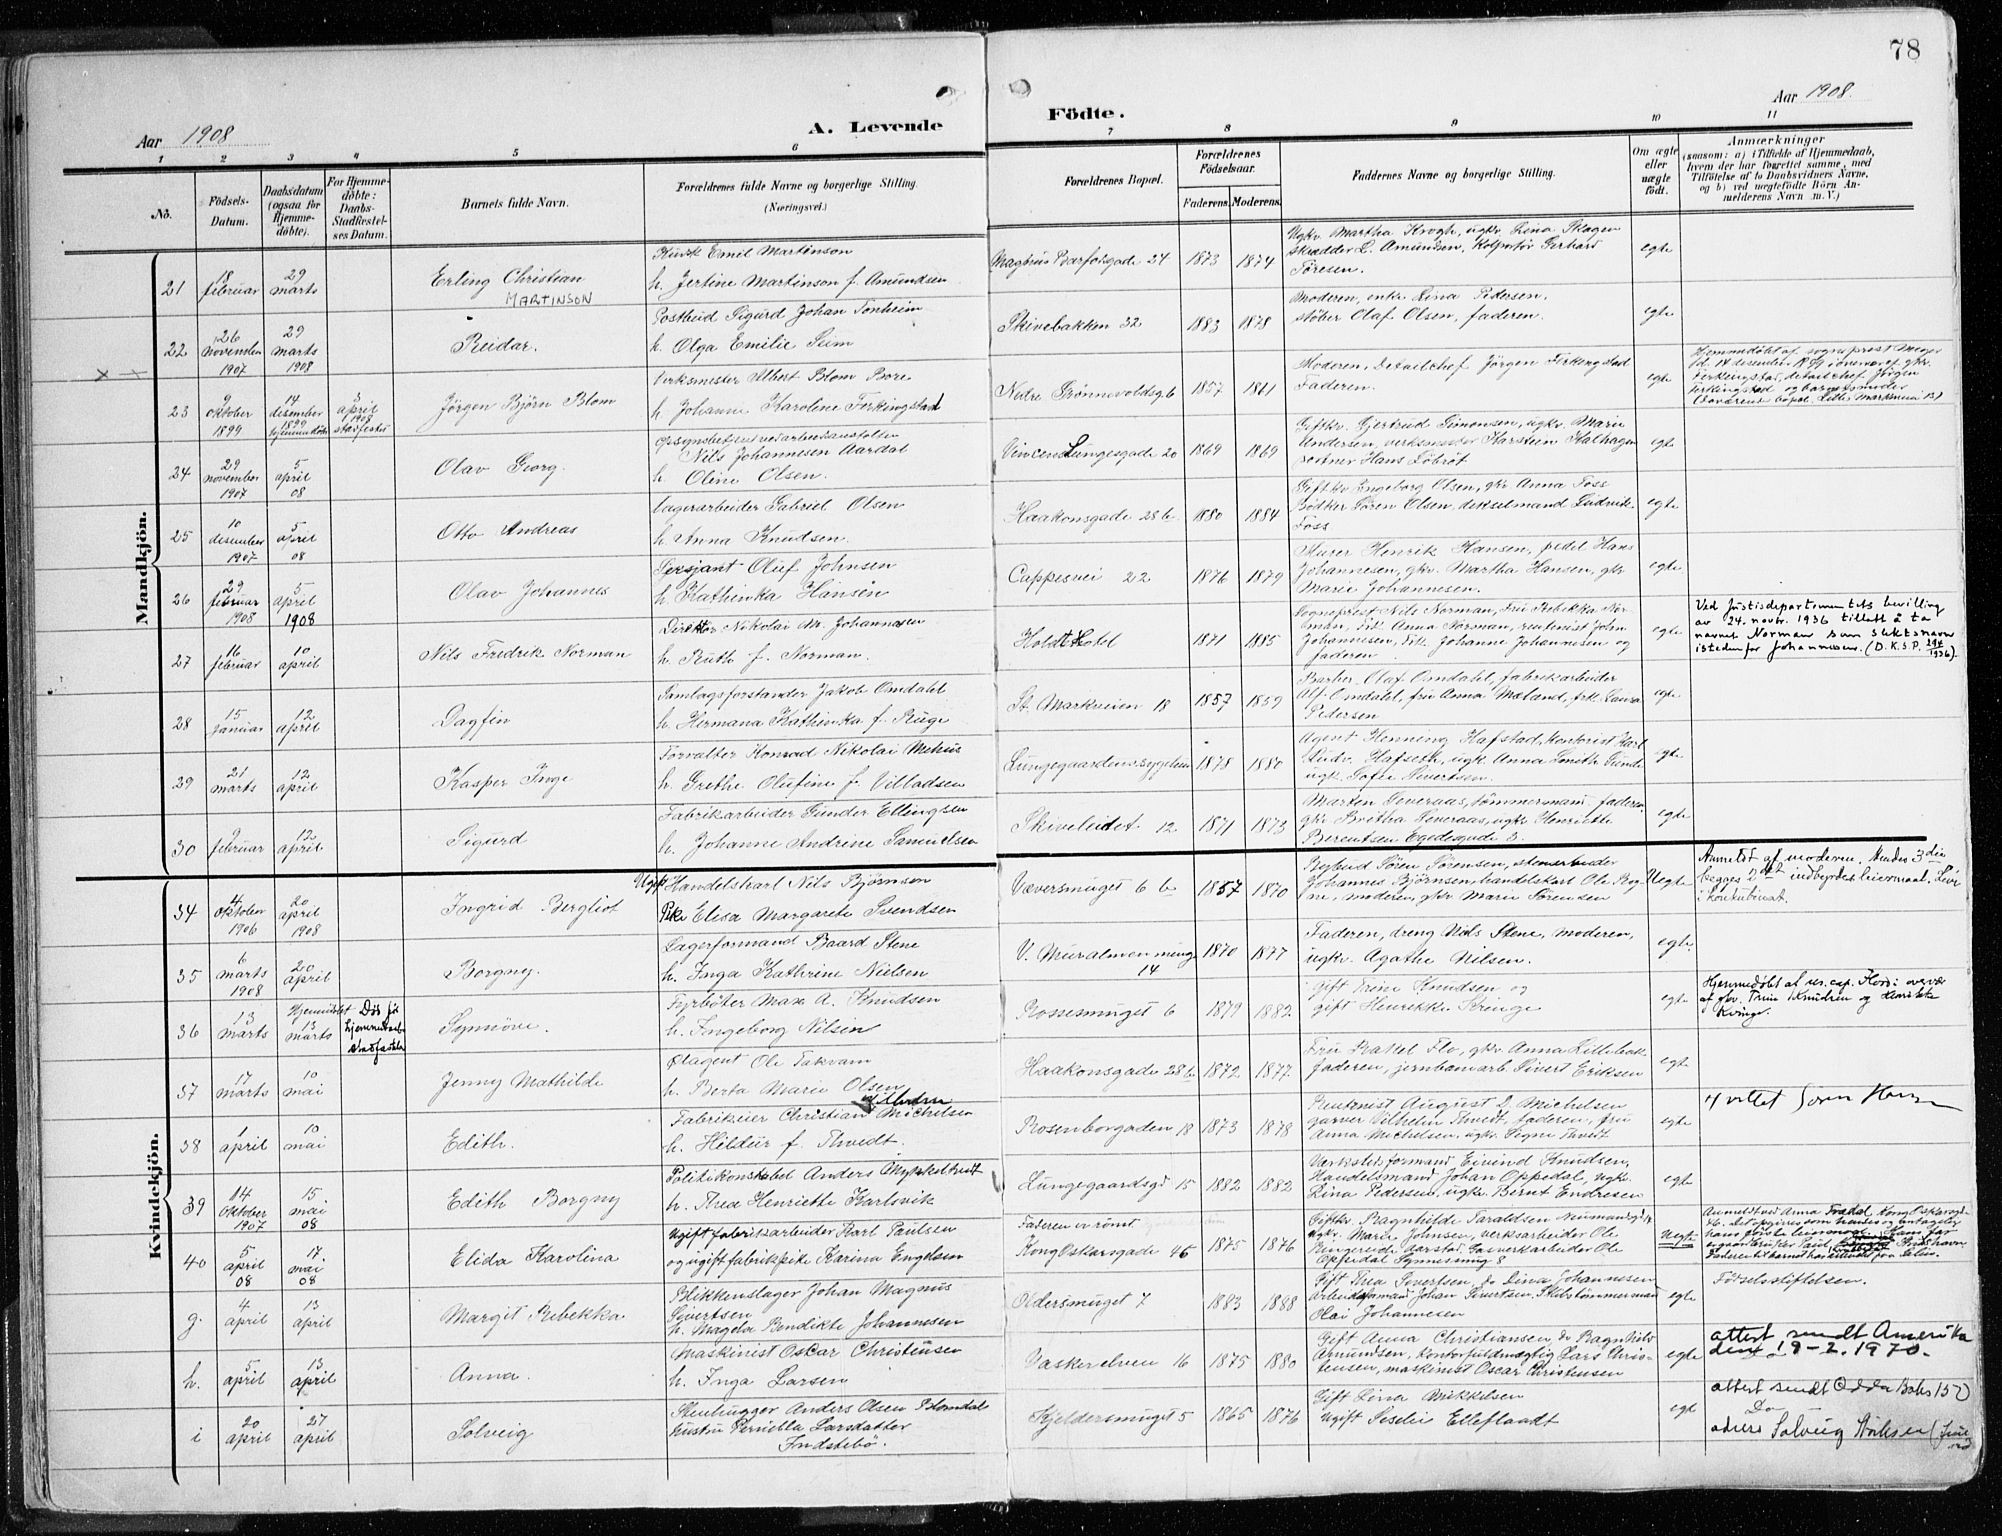 78
Aar 1908
A. Levende
Födte.
Aar 1908.
1 2 3 4 5 6 7 8 9 10 11
No.
Födsels-
Datum.
Daabsdatum
(ogsaa for
Hjemme-
döbte).
For Hjemme-
döbte:
Daabs-
Stadfæstel-
ses Datum.
Barnets fulde Navn.
Forældrenes fulde Navne og borgerlige Stilling.
(Næringsvei.)
Forældrenes Bopæl.
Forældrenes
Födselsaar.
Faderens. Moderens.
Faddernes Navne og borgerlige Stilling.
Om ægte
eller
uægte
födt.
Anmærkninger
(saasom: a) i Tilfælde af Hjemmedaab,
hvem der har forrettet samme, med
Tilföielse af to Daabsvidners Navne,
og b) ved uægtefödte Börn An-
melderens Navn m. V.)
Mandkjön.
21 18 februar 29 marts
Erling Christian
MARTINSON
Kusk Emil Martinson
h. Jertine Martinson f. Amundsen
Magnus Barfodsgade 24 1873 1874
Ugkv. Martha Krogh, ugkv. Lina Skagen
skrædder L. Amundsen, Kolportør Gerhard
Tøresen.
egte
22 26 november 1907 29 marts 1908
Reidar.
Postbud Sigurd Johan Tonheim
h. Olga Emilie Seim
Skivebakken 32 1883 1878
Moderen, enke Lina Pedersen.
støber Olaf Olsen, faderen.
egte
23 9 oktober 1899 14 desember 1899 hjemmedøbt 5 april 1908 stadfestet
Jörgen Björn Blom
Verksmester Albert Blom Bore
h. Johanne Karoline Ferkingstad
Nedre Grønnevoldsg 6 1857 1861
Moderen, Detailchef Jörgen Ferkingstad
Faderen.
egte
24 29 november 1907 5 april 08
Olav Georg.
Nils Johannesen Aardal
h. Oline Olsen.
Vincens Lungesgade 20 1869 1869
Giftkv. Gjertrud Simonsen, ugkv. Marie
Andersen, verksmester Karsten Kalhagen
portner Hans Löbröt
egte
25 10 desember 1907 5 april 08
Otto Andreas
Lagerarbeider Gabriel Olsen
h. Anna Knudsen.
Haakonsgade 28 b 1880 1884
Giftkv Ingeborg Olsen, gkv Anna Foss
Bödker Sören Olsen, dekselmand Ludvik
Foss
egte
26 29 februar 1908 5 april 1908
Olav Johannes
Sersjant Oluf Johnsen
h. Kathinka Hansen
Cappesvei 22 1876 1879
Murer Henrik Hansen, pedel Hans
Johannesen, gkv. Martha Hansen, gkv
Marie Johannesen.
egte
27 16 februar 10 april
Nils Fredrik Norman
Direktör Nikolai M. Johannesen
h. Ruth f. Norman.
Holdt Hotel 1871 1885
Sogneprest Nils Norman, Fru Rebekka Nor-
man, frk. Anna Norman, rentenist John
Johannesen, frk. Johanne Johannesen og
faderen
egte
Ved Justisdepartementets bevilling
av 24. novbr. 1936 tillatt å ta
navnet Norman som slektsnavn
istedenfor Johannesen. (D.K.S.P. 294/1936).
28 15 januar 12 april
Dagfin
Samlagsforstander Jakob Omdahl
h. Hermana Kathinka f. Ruge
St. Markveien 18 1857 1859
Barber Olaf Omdahl, fabrikarbeider
Alf Omdahl, fru Anna Mæland, frk. Laura
Pedersen
egte
29 21 marts 12 april
Kasper Inge
Forvalter Konrad Nikolai Mehus
h. Grethe Olufine f. Villadsen
Lungegaardens sygehus 1878 1880
Agent Henning Hafstad, Kontorist Karl
Ludv. Hafseth, ugk. Anna
ugk. Sofie Sivertsen.
egte
30 9 februar 12 april
Sigurd
Fabrikarbeider Gunder Ellingsen
h. Johanne Andrine Samuelsen
Skiveleidet 12 1871 1873
Marten Severaas, tömmermand. faderen,
gkv Britha Severaas, ugkv Henriette
Berentsen Egedesgade 3.
egte
Kvindekjön.
34 4 oktober 1906 20 april 1908
Ingrid Bergliot
Ugift Handelskarl Nils Björnsen
Pike Elisa Margarete Svendsen
Væversmuget 6 b 1857 1870
Bybud Sören Sörensen, stenarbeider
Johannes Björnsen, handelskarl Ole Bog-
ne, moderen, gkv. Marie Sörensen
Uegte
Anmeldt af moderen. Hendes 3die
begges 2det indbyrdes leiermaal. Lever
i konkubinat.
35 6 marts 1908 20 april
Borgny.
Lagerformand Baard Stene
h. Inga Kathrine Nielsen
V. Muralmenning 14 1870 1877
Faderen, dreng Nils Stene, moderen,
ugkv. Agathe Nilsen.
egte.
36 13 marts Hjemmedøbt 13 marts Død før hjemmedaaben stadfæstedes
Synnöve.
Fyrböter Max A. Knudsen
h. Ingeborg Nilsen
Rossesmuget 6 1879 1882
Gift Trine Knudsen og
gift Henrikke Kvinge
egte
Hjemmedøbt af res. cap. Hord i overvær
af gkv. Trine Knudsen og Henrikke
Kvinge.
37 17 marts 10 mai
Jenny Mathilde
Ølagent Ole Takvam
h. Berta Marie Olsen
Haakonsgade 28 b 1872 1877
Fru Rakel Flo, gkv. Anna Lillebak-
faderen, jernbanearb Sivert Eriksen
egte
38 1 april 10 mai
Edith.
Fabrikeier Christian Michelsen
h. Hildur f. Thvedt.
Rosenborgaden 18 1873 1878
Rentenist August D. Michelsen
garver Vilhelm Thvedt, faderen, fru
Anna Michelsen, ugkv. Signe Thvedt
egte
39 14 oktober 1907 15 mai 08
Edith Borgny
Politikonstabel Anders Myklethvedt
h. Thea Henriette Karlsvik
Lungegaardsgd 15 1882 1882
Værkstedsformand Eivind Knudsen,
Handelsmand Johan Oppedal, ugkv.
Lina Pedersen, ugkv. Bernt Endresen
egte
40 5 april 08 17 mai 08
Elida Karolina
Ugift fabrikarbeider Karl Paulsen
og ugift fabrikpike Karina Engelsen
Faderen er römt
Kong Oskarsgade 46 1875 1876
Giftkv. Ragnhilde Taraldsen Neumansgd 4
Ugkv. Marie Johnsen, verksarbeider Ole
Ringereide Aarstad, Gasverkarbeider Ole
Oppedal
Uegte
g. 4 april 13 april
Margit Rebekka
Blikkenslager Johan Magnus
Sivertsen
h. Magda Bendikte Johannesen
Oldersmuget 7 1883 1888
Gift Thea Sivertsen, do Dina Johannesen
Arbeidsmand Johan Sivertsen, Skibstömmermand
Olai Johannesen
egte
Födselsstiftelsen.
h. 5 april 13 april
Anna.
Maskinist Oscar Christensen
h. Inga Larsen
Vaskerelven 16 1875 1880
Gift Anna Christiansen, do Ragnhild
Amundsen, kontorfuldmægtig Lars Chris-
tensen, maskinist Oscar Christensen
egte
attest sendt Amerika
den 19-2. 1970.
i 20 april 27 april
Solveig
Stenhugger Anders Olsen Blomdal
hustru Pernella Larsdatter
Indstebö.
Kjeldersmuget 5 1865 1876
Gift Lina Mikkelsen
Ugift Seselie Elleflaadt
egt
attest sendt Odda Boks 157
Do
adress Solveig